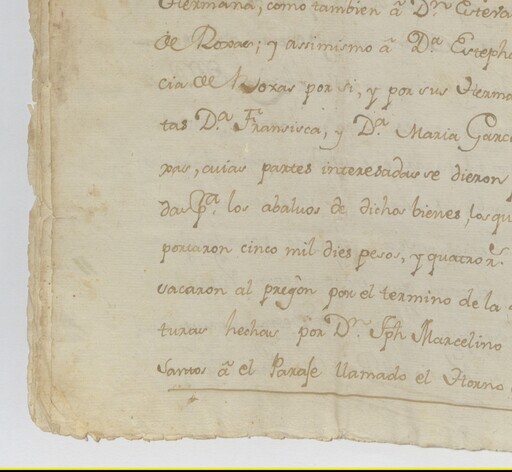 Hermana, como tambien â Dn. Esteva
de Roxas; y assimismo â Da. Esteph
cia de Roxas por si, y por sus Herma
tas Da. Fransisca, y Da. Maria Garc
xas, cuias partes interesadas se dieron
das pa. los abaluos de dichos bienes, los qu
portaron cinco mil dies pesos, y quatro rs.
sacaron al pregon por el termino de la
turas hechas por Dn. Jph Marcelino
Santos â el Paraje llamado el Horno